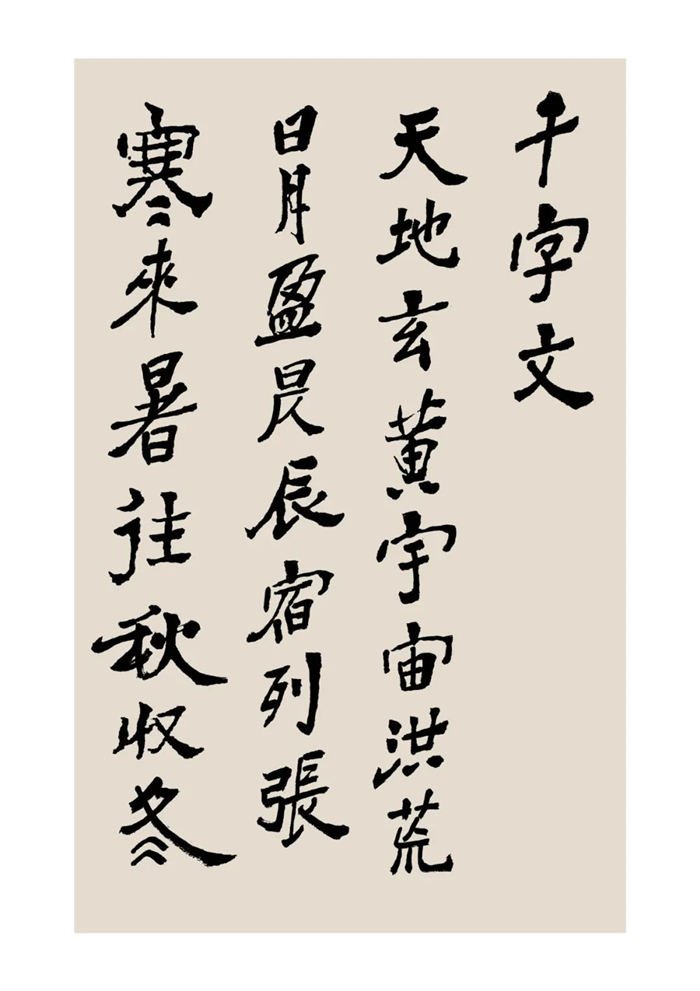 千字文
天地玄黃宇宙洪荒
日月盈昃辰宿列張
寒來暑往秋收冬